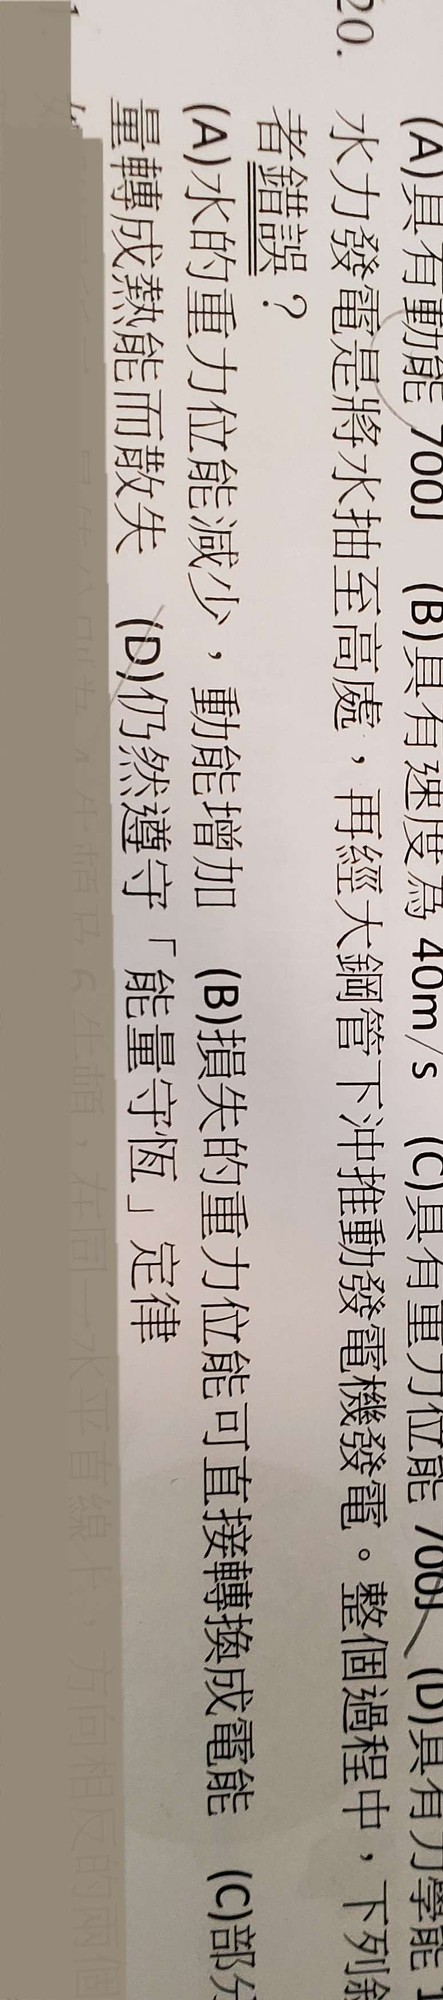 (A)具有動能 700J (B)具有速度為 40m/s (C)具有重力位能 700J (D)具有力學能
20. 水力發電是將水抽至高處，再經大鋼管下沖推動發電機發電。整個過程中，下列
者錯誤？
(A)水的重力位能減少，動能增加 (B)損失的重力位能可直接轉換成電能 (C)部分
量轉成熱能而散失 (D)仍然遵守「能量守恆」定律